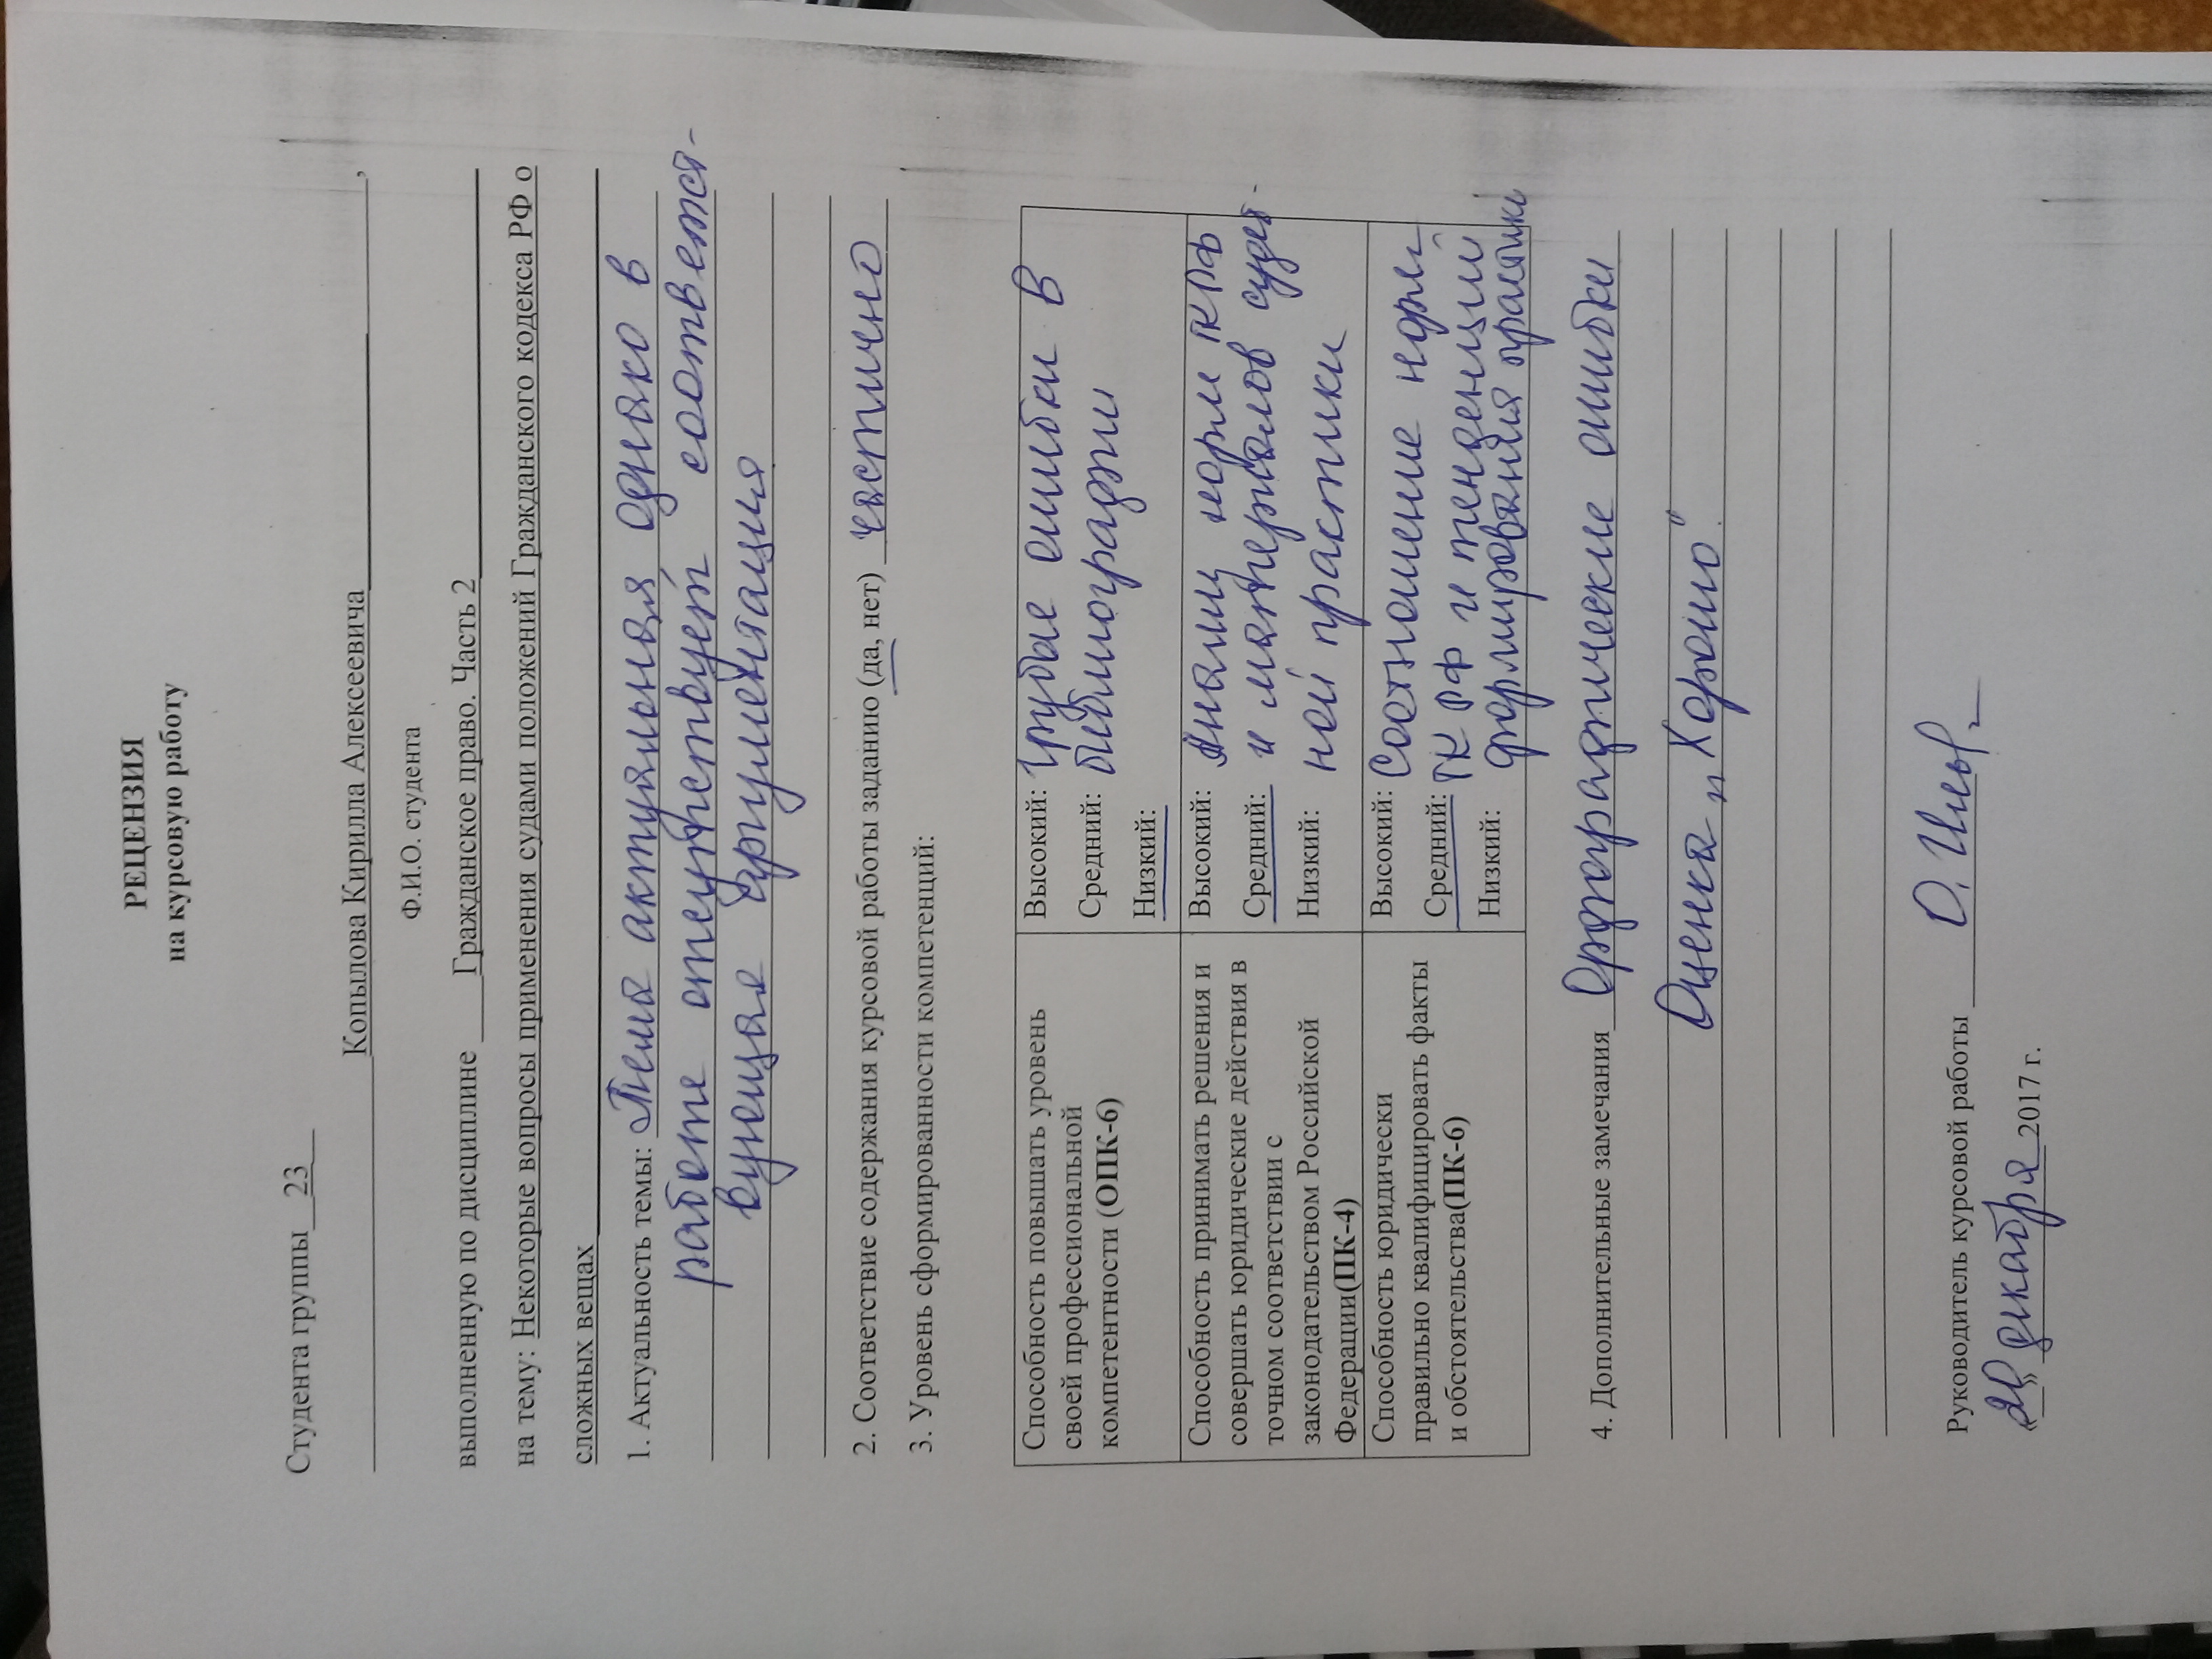 РЕЦЕНЗИЯ
на курсовую работу
Студента группы 23
Копылова Кирилла Алексеевича,
Ф.И.О. студента
выполненную по дисциплине Гражданское право. Часть 2
на тему: Некоторые вопросы применения судами положений Гражданского кодекса РФ о
сложных вещах
1. Актуальность темы: Тема актуальная однако в
работе отсутствует соответст-
вующая аргументация
2. Соответствие содержания курсовой работы заданию (да, нет) частично
3. Уровень сформированности компетенций:
Способность повышать уровень
своей профессиональной
компетентности (ОПК-6)
Высокий: Грубые ошибки в
Средний: библиографии
Низкий:
Способность принимать решения и
совершать юридические действия в
точном соответствии с
законодательством Российской
Федерации(ПК-4)
Высокий: Анализ норм ГК РФ
Средний: и материалов судеб-
Низкий: ной практики
Способность юридически
правильно квалифицировать факты
и обстоятельства(ПК-6)
Высокий: Соотношение норм
Средний: ГК РФ и тенденций
Низкий: формирования практики
4. Дополнительные замечания Орфографические ошибки
Оценка „Хорошо".
Руководитель курсовой работы
декабря 2017 г.